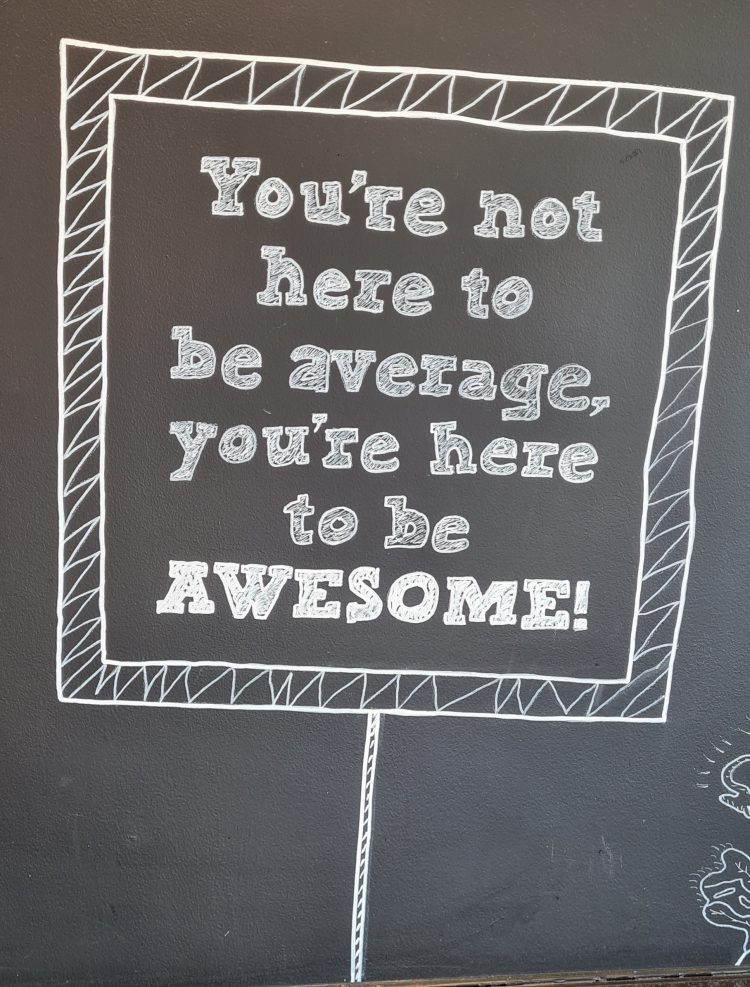 You're not
here to
be average,
you're here
to be
AWESOME!